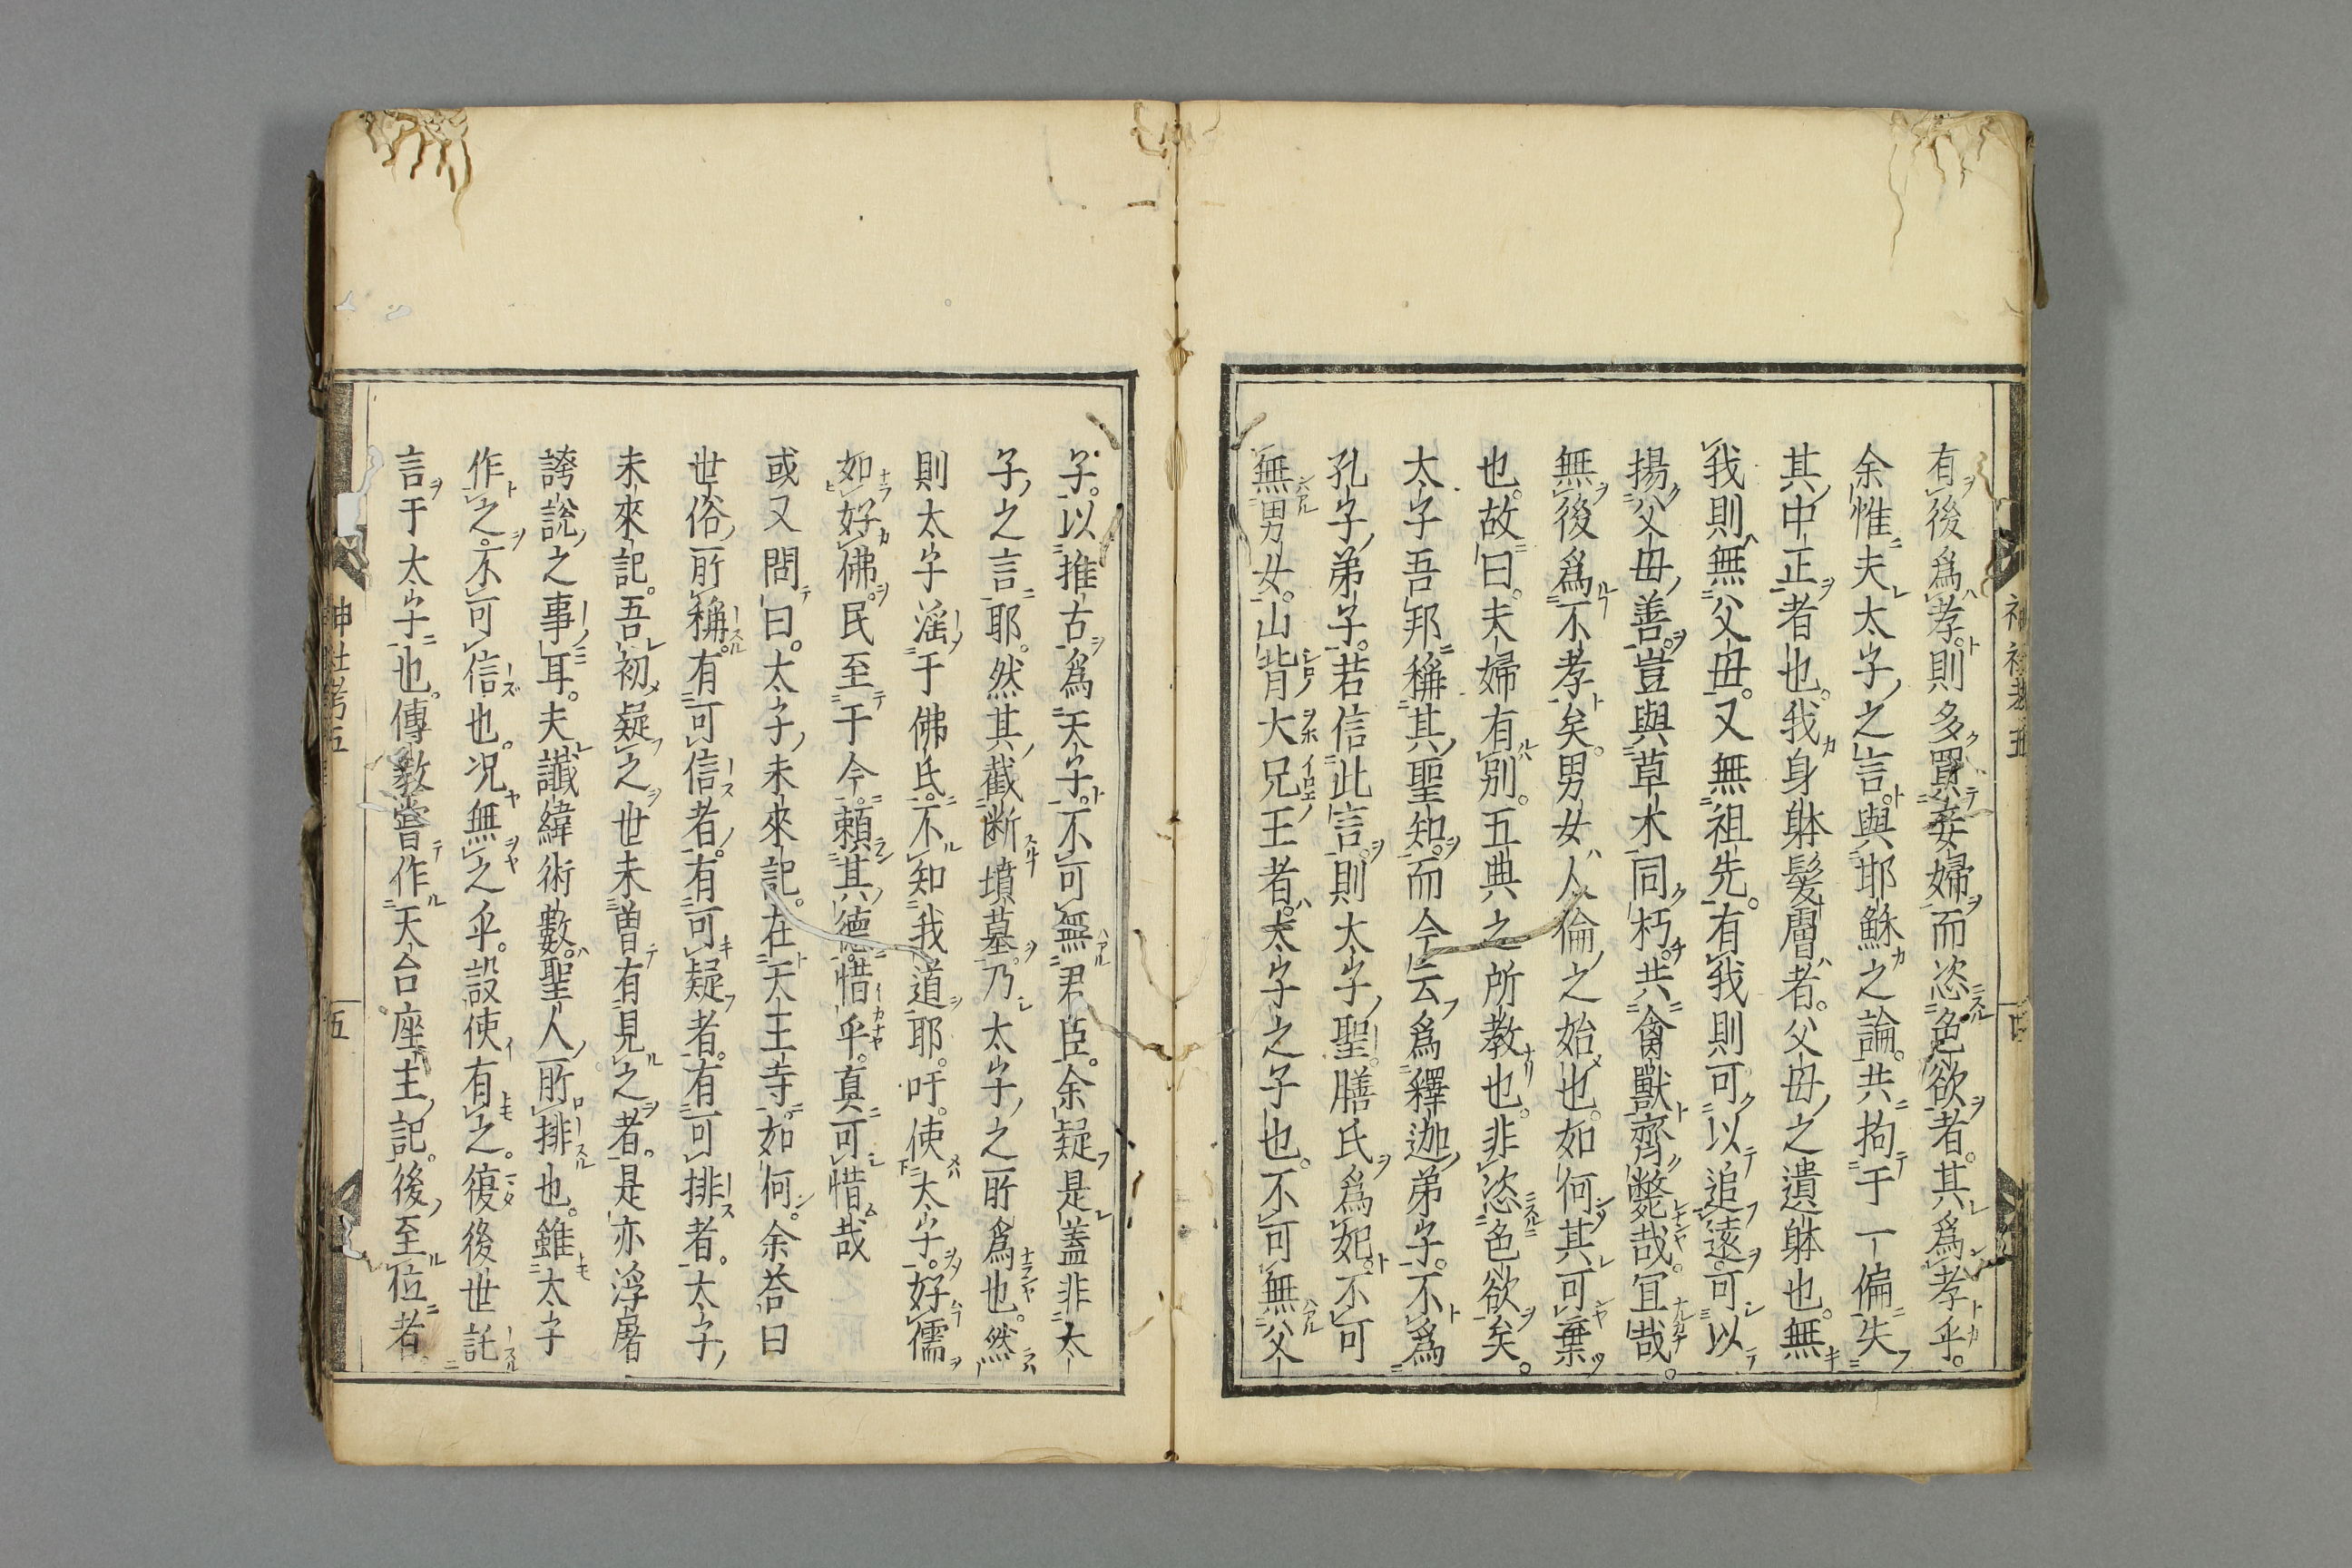 有後爲孝。則多買妾婦而恣色欲者。其爲孝乎。
余惟夫太子之言。與耶穌之論。共拘于一偏失
其中正者也。我身躰髮膚者。父毋之遺躰也。無
我則無父毋。又無祖先。有我則可以追遠。可以
揚父毋善。豈與草木同朽。共禽獸齊斃哉。冝哉。
無後爲不孝矣。男女人倫之始也。如何其可棄
也。故曰。夫婦有別。五典之所教也。非恣色欲矣。
太子吾邦稱其聖知。而今云爲釋迦弟子。不爲
孔子弟子。若信此言。則太子聖。膳氏爲妃。不可
無男女。山背大兄王者。太子之子也。不可無父
子。以推古爲天子。不可無君臣。余疑是蓋非太
子之言耶。然其截断墳墓。乃太子之所爲也。然
則太子滛于佛氏。不知我道耶。吁。使太子。好儒
如好佛。民至于今。頼其德。惜乎。真可惜哉
或又問曰。太子未來記。在天王寺。如何。余荅曰
世俗所稱。有可信者。有可疑者。有可排者。太子
未來記。吾初疑之世未曽有見之者。是亦浮屠
誇說之事耳。夫讖緯術數。聖人所排也。雖太子
作之。不可信也。况無之乎。設使有之。復後世託
言于太子也。傳敎嘗作天台座主記。後至位者。
神社考五
五